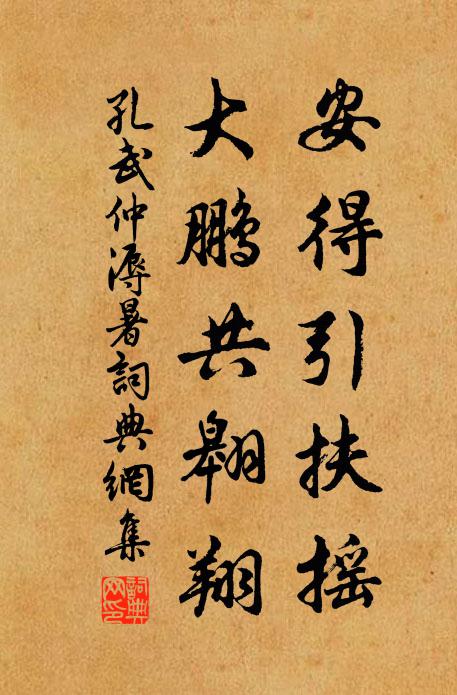 安得引扶摇
大鹏共翱翔
孔武仲溽暑詞典網集
詞典网印